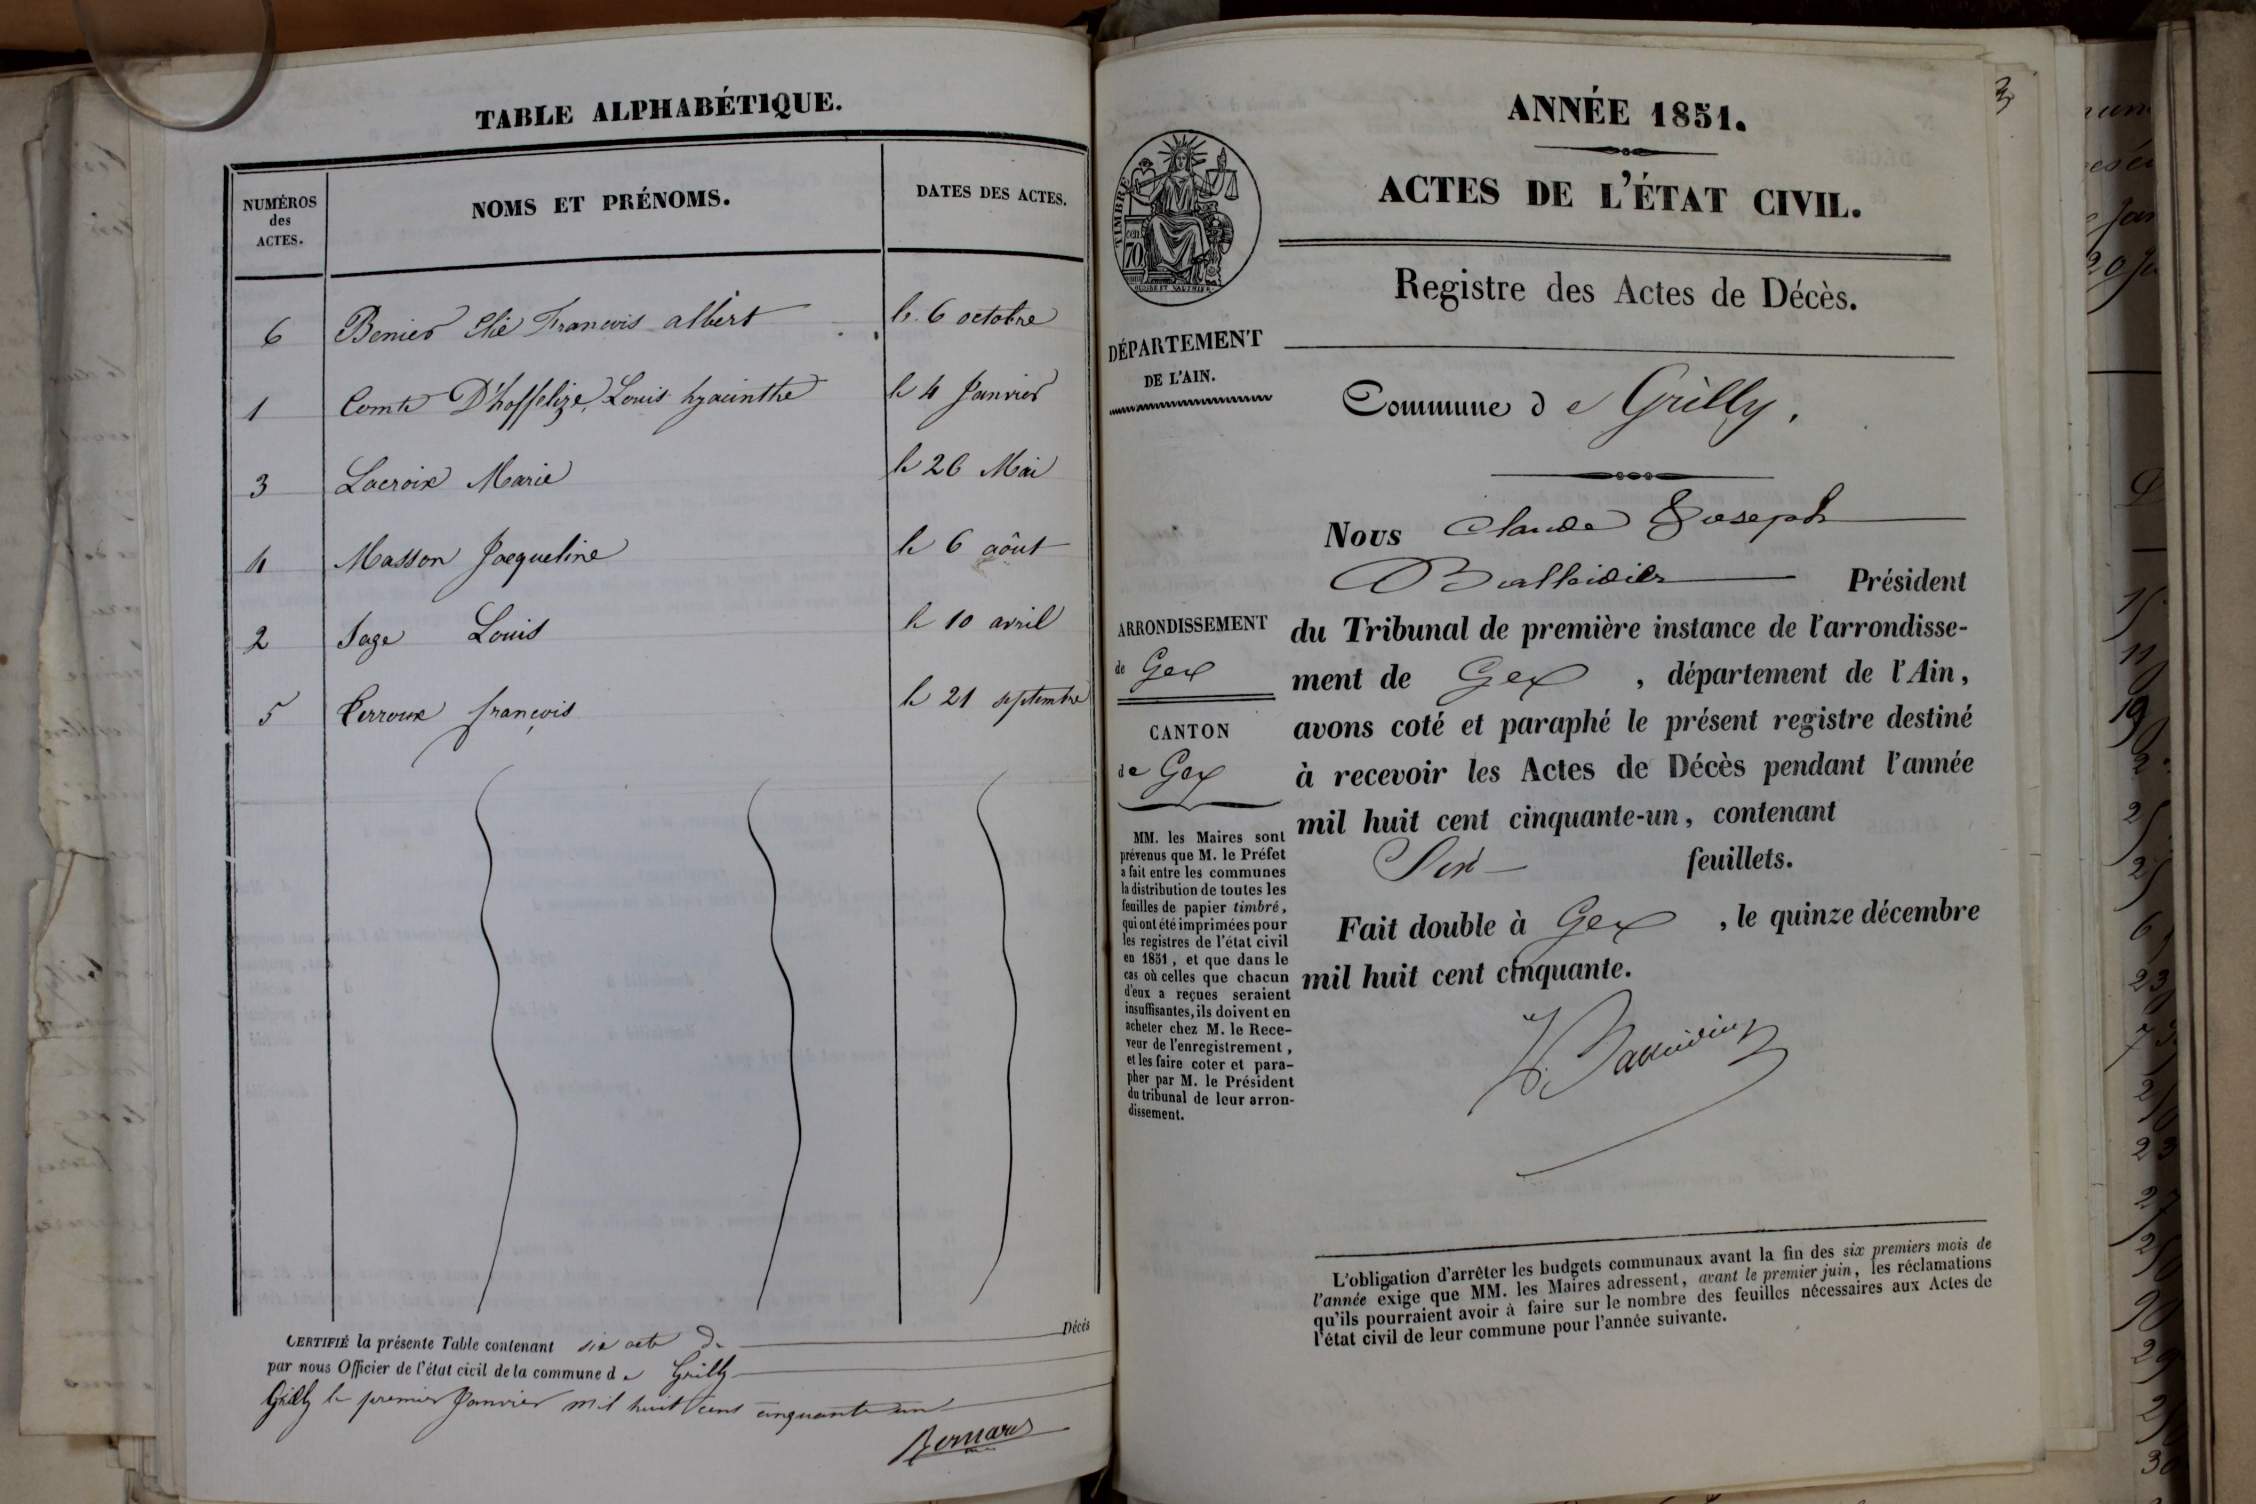 TABLE ALPHABÉTIQUE.
NUMÉROS des ACTES.
NOMS ET PRÉNOMS.
DATES DES ACTES.
6 Benier Elie François albert le 6 octobre
1 Comte D'hoffelize, Louis hyacinthe le 4 Janvier
3 Lacroix Marie le 26 Mai
4 Masson Jacqueline le 6 août
2 Sage Louis le 10 avril
5 Perroux françois le 21 septembre
CERTIFIÉ la présente Table contenant six acte de Décés
par nous Officier de l'état civil de la commune de Grilly
Grilly le premier Janvier mil huit cent cinquante un
Bernard
3
ANNÉE 1851.
ACTES DE L'ÉTAT CIVIL.
TIMBRE
70
Registre des Actes de Décès.
DÉPARTEMENT
DE L'AIN.
Commune de Grilly.
Nous Claude Joseph
Balleidier Président
du Tribunal de première instance de l'arrondisse-
ment de Gex, département de l'Ain,
avons coté et paraphé le présent registre destiné
à recevoir les Actes de Décès pendant l'année
mil huit cent cinquante-un, contenant
Six feuillets.
Fait double à Gex, le quinze décembre
mil huit cent cinquante.
ARRONDISSEMENT
de Gex
CANTON
de Gex
MM. les Maires sont
prévenus que M. le Préfet
a fait entre les communes
la distribution de toutes les
feuilles de papier timbré,
qui ont été imprimées pour
les registres de l'état civil
en 1851, et que dans le
cas où celles que chacun
d'eux a reçues seraient
insuffisantes, ils doivent en
acheter chez M. le Rece-
veur de l'enregistrement,
et les faire coter et para-
pher par M. le Président
du tribunal de leur arron-
dissement.
L'obligation d'arrêter les budgets communaux avant la fin des six premiers mois de
l'année exige que MM. les Maires adressent, avant le premier juin, les réclamations
qu'ils pourraient avoir à faire sur le nombre des feuilles nécessaires aux Actes de
l'état civil de leur commune pour l'année suivante.